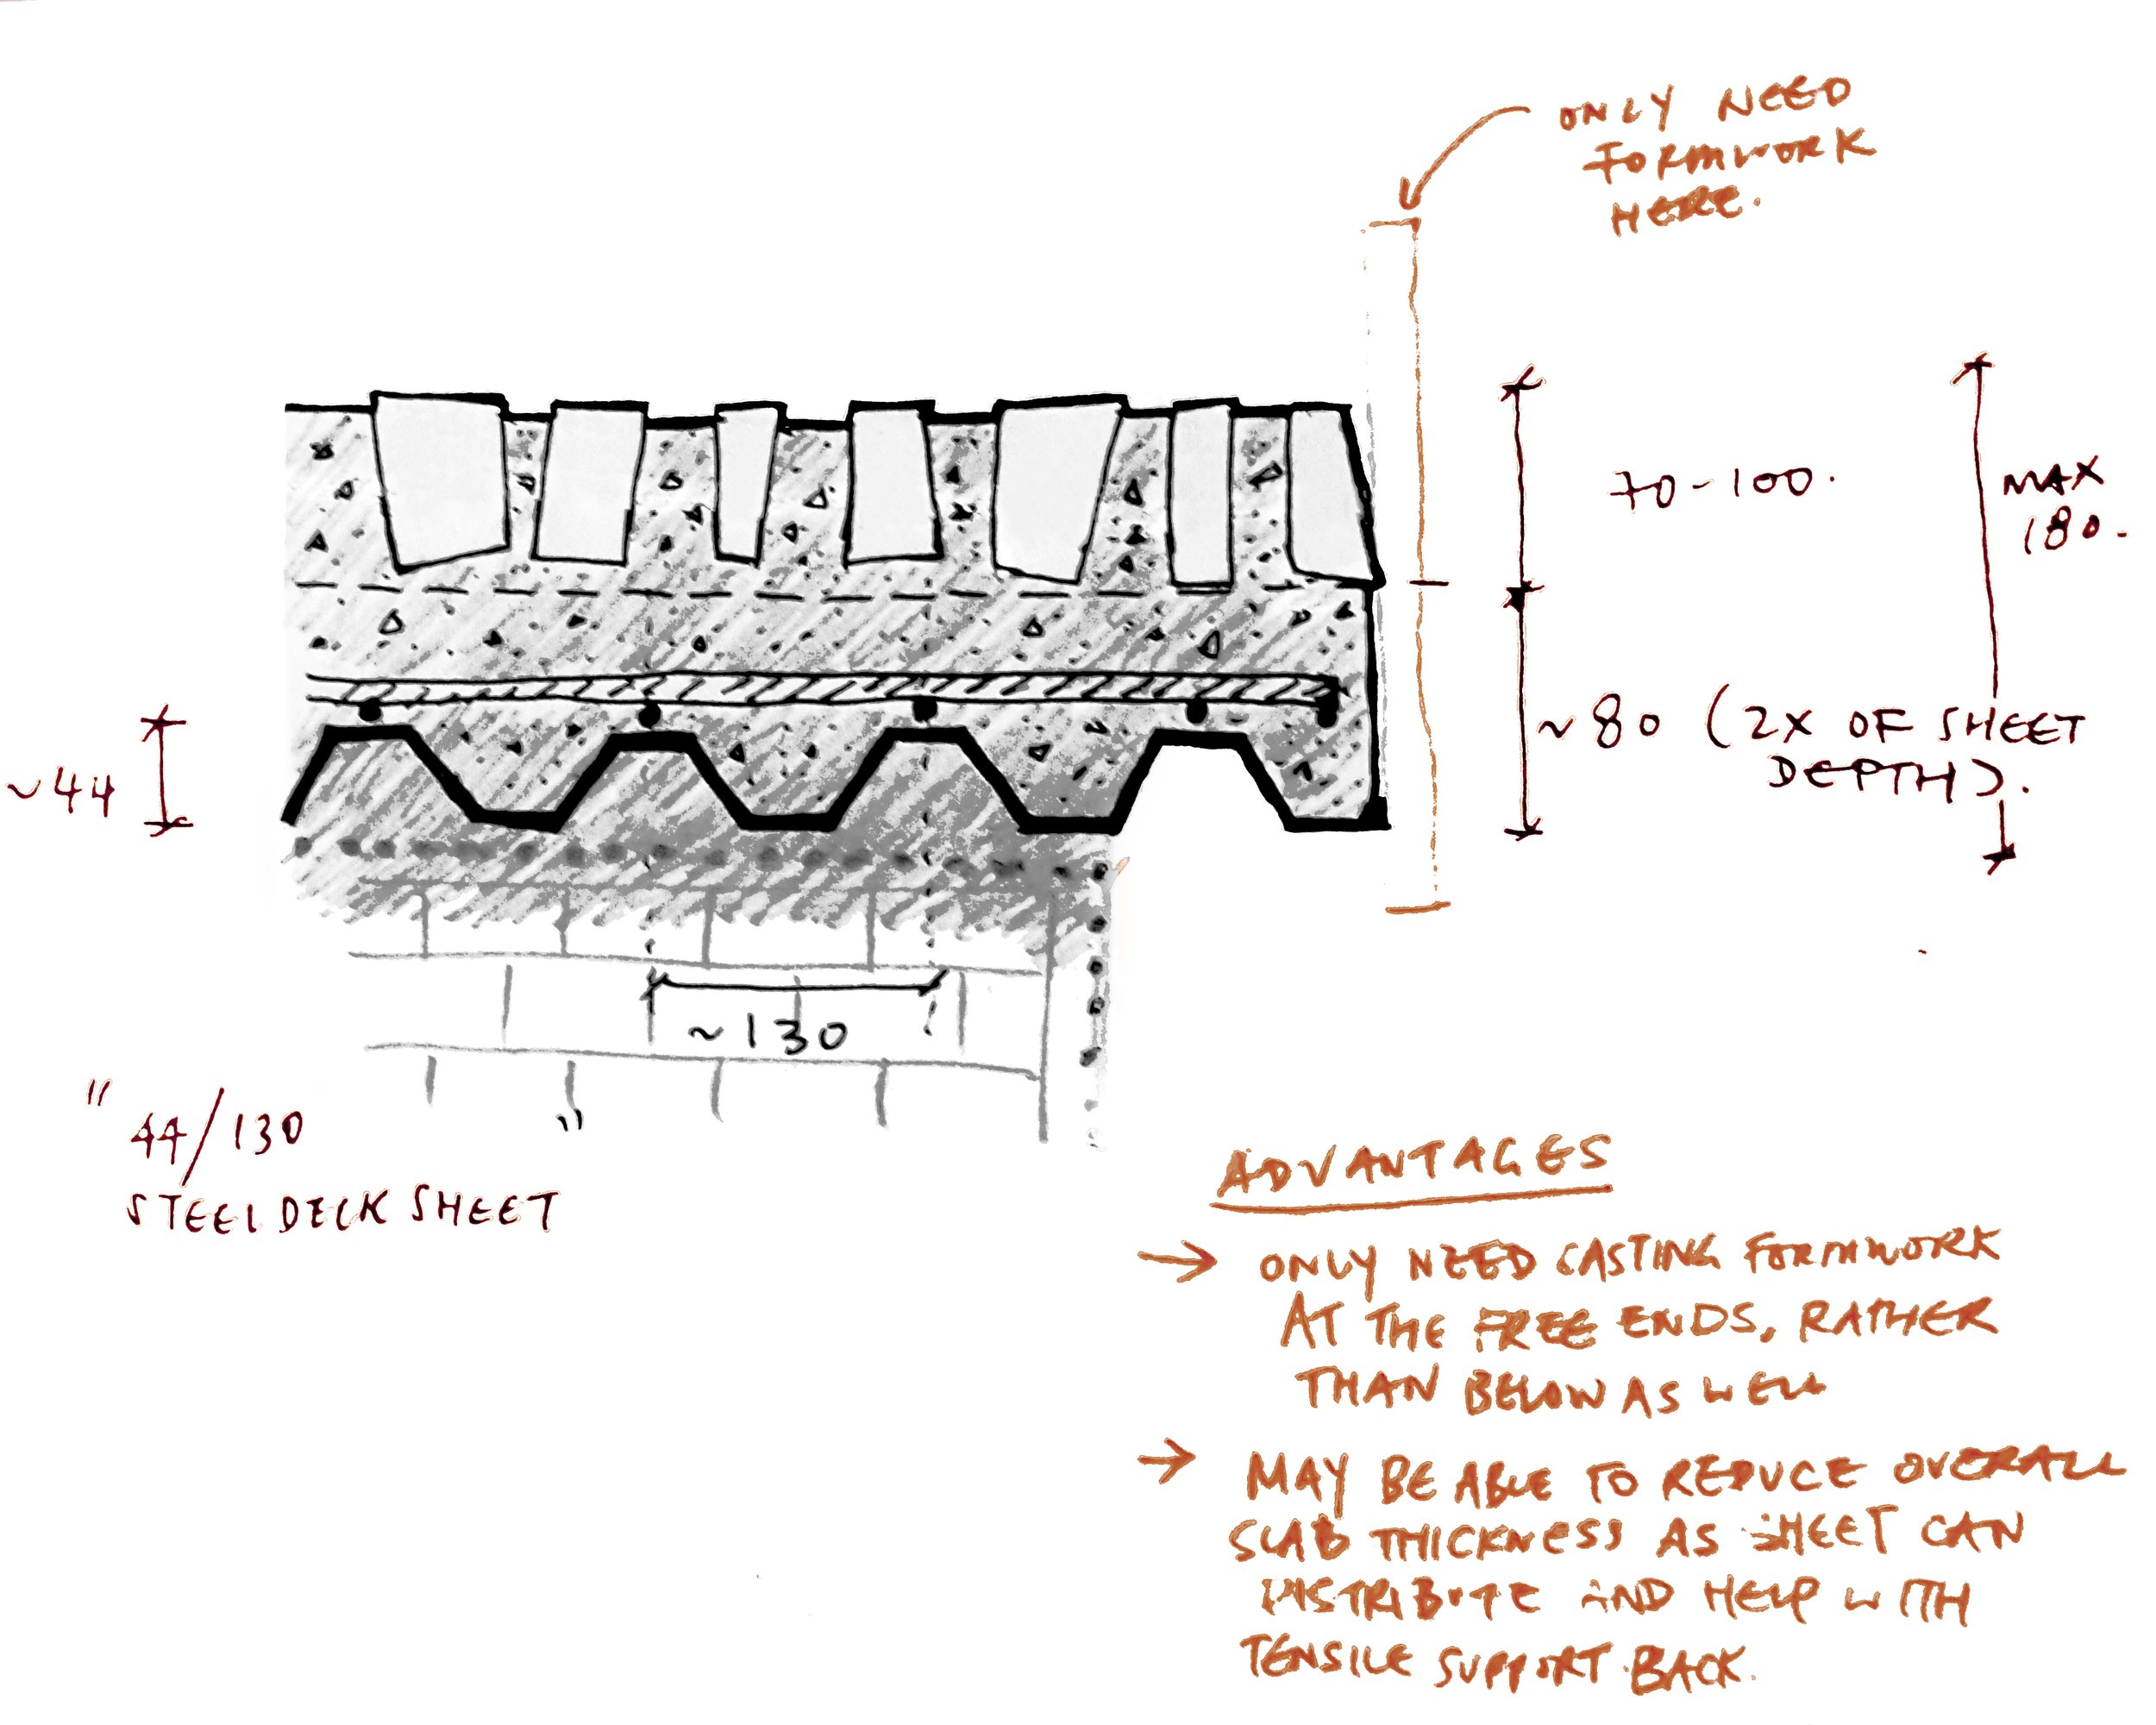 ONLY NEED
FORMWORK
HERE.
70-100.
MAX
180.
~80 (2X OF SHEET
DEPTH).
~44
~130
"44/130"
STEEL DECK SHEET
ADVANTAGES
→ ONLY NEED CASTING FORMWORK
AT THE FREE ENDS, RATHER
THAN BELOW AS WELL
→ MAY BE ABLE TO REDUCE OVERALL
SLAB THICKNESS AS SHEET CAN
DISTRIBUTE AND HELP WITH
TENSILE SUPPORT BACK.